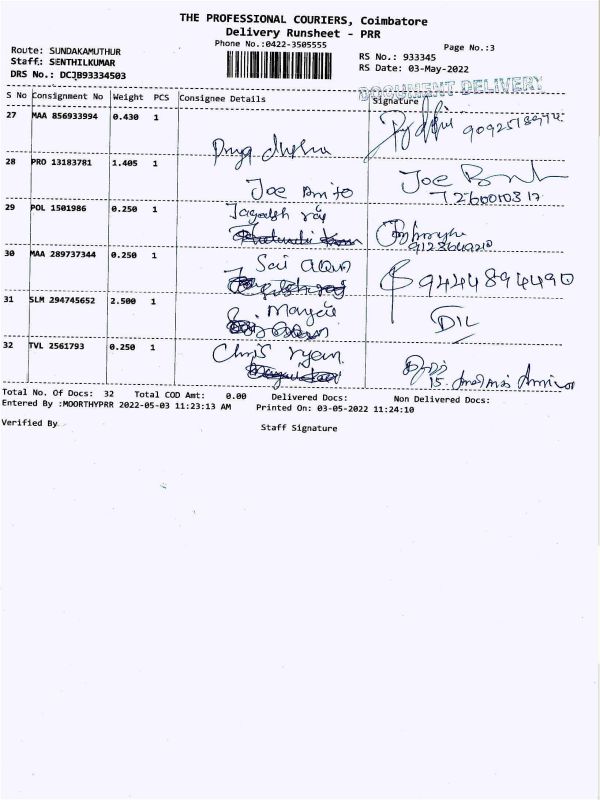 THE PROFESSIONAL COURIERS, Coimbatore
Delivery Runsheet - PRR
Phone No.:0422-3505555
Page No.:3
Route: SUNDAKAMUTHUR
Staff: SENTHILKUMAR
DRS No.: DCJB93334503
RS No.: 933345
RS Date: 03-May-2022
DOCUMENT DELIVERY
S No Consignment No Weight PCS Consignee Details Signature
27 MAA 856933994 0.430 1
28 PRO 13183781 1.405 1
Joe Brito Joe
29 POL 1501986 0.250 1
Jagadish raj
30 MAA 289737344 0.250 1
Sai 9444894490
31 SLM 294745652 2.500 1
32 TVL 2561793 0.250 1
Chris ryan
Total No. Of Docs: 32 Total COD Amt: 0.00 Delivered Docs: Non Delivered Docs:
Entered By :MOORTHYPRR 2022-05-03 11:23:13 AM Printed On: 03-05-2022 11:24:10
Verified By
Staff Signature